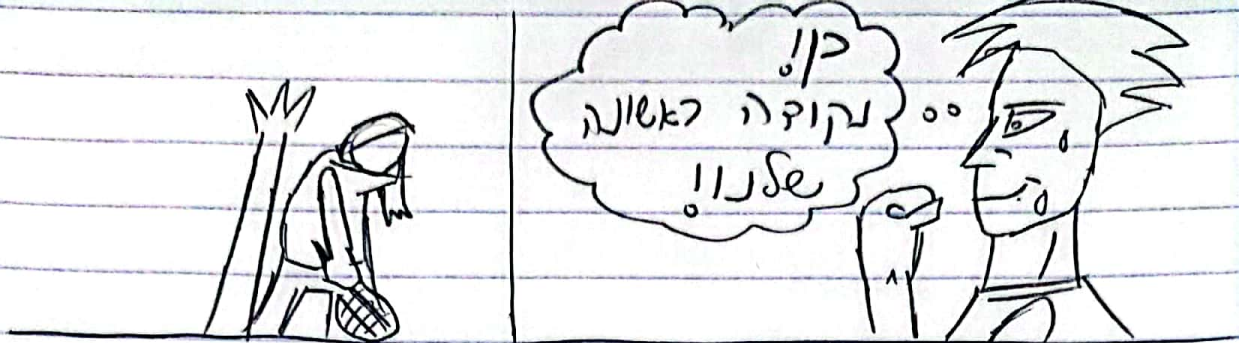 כן!
נקודה ראשונה
שלנו!